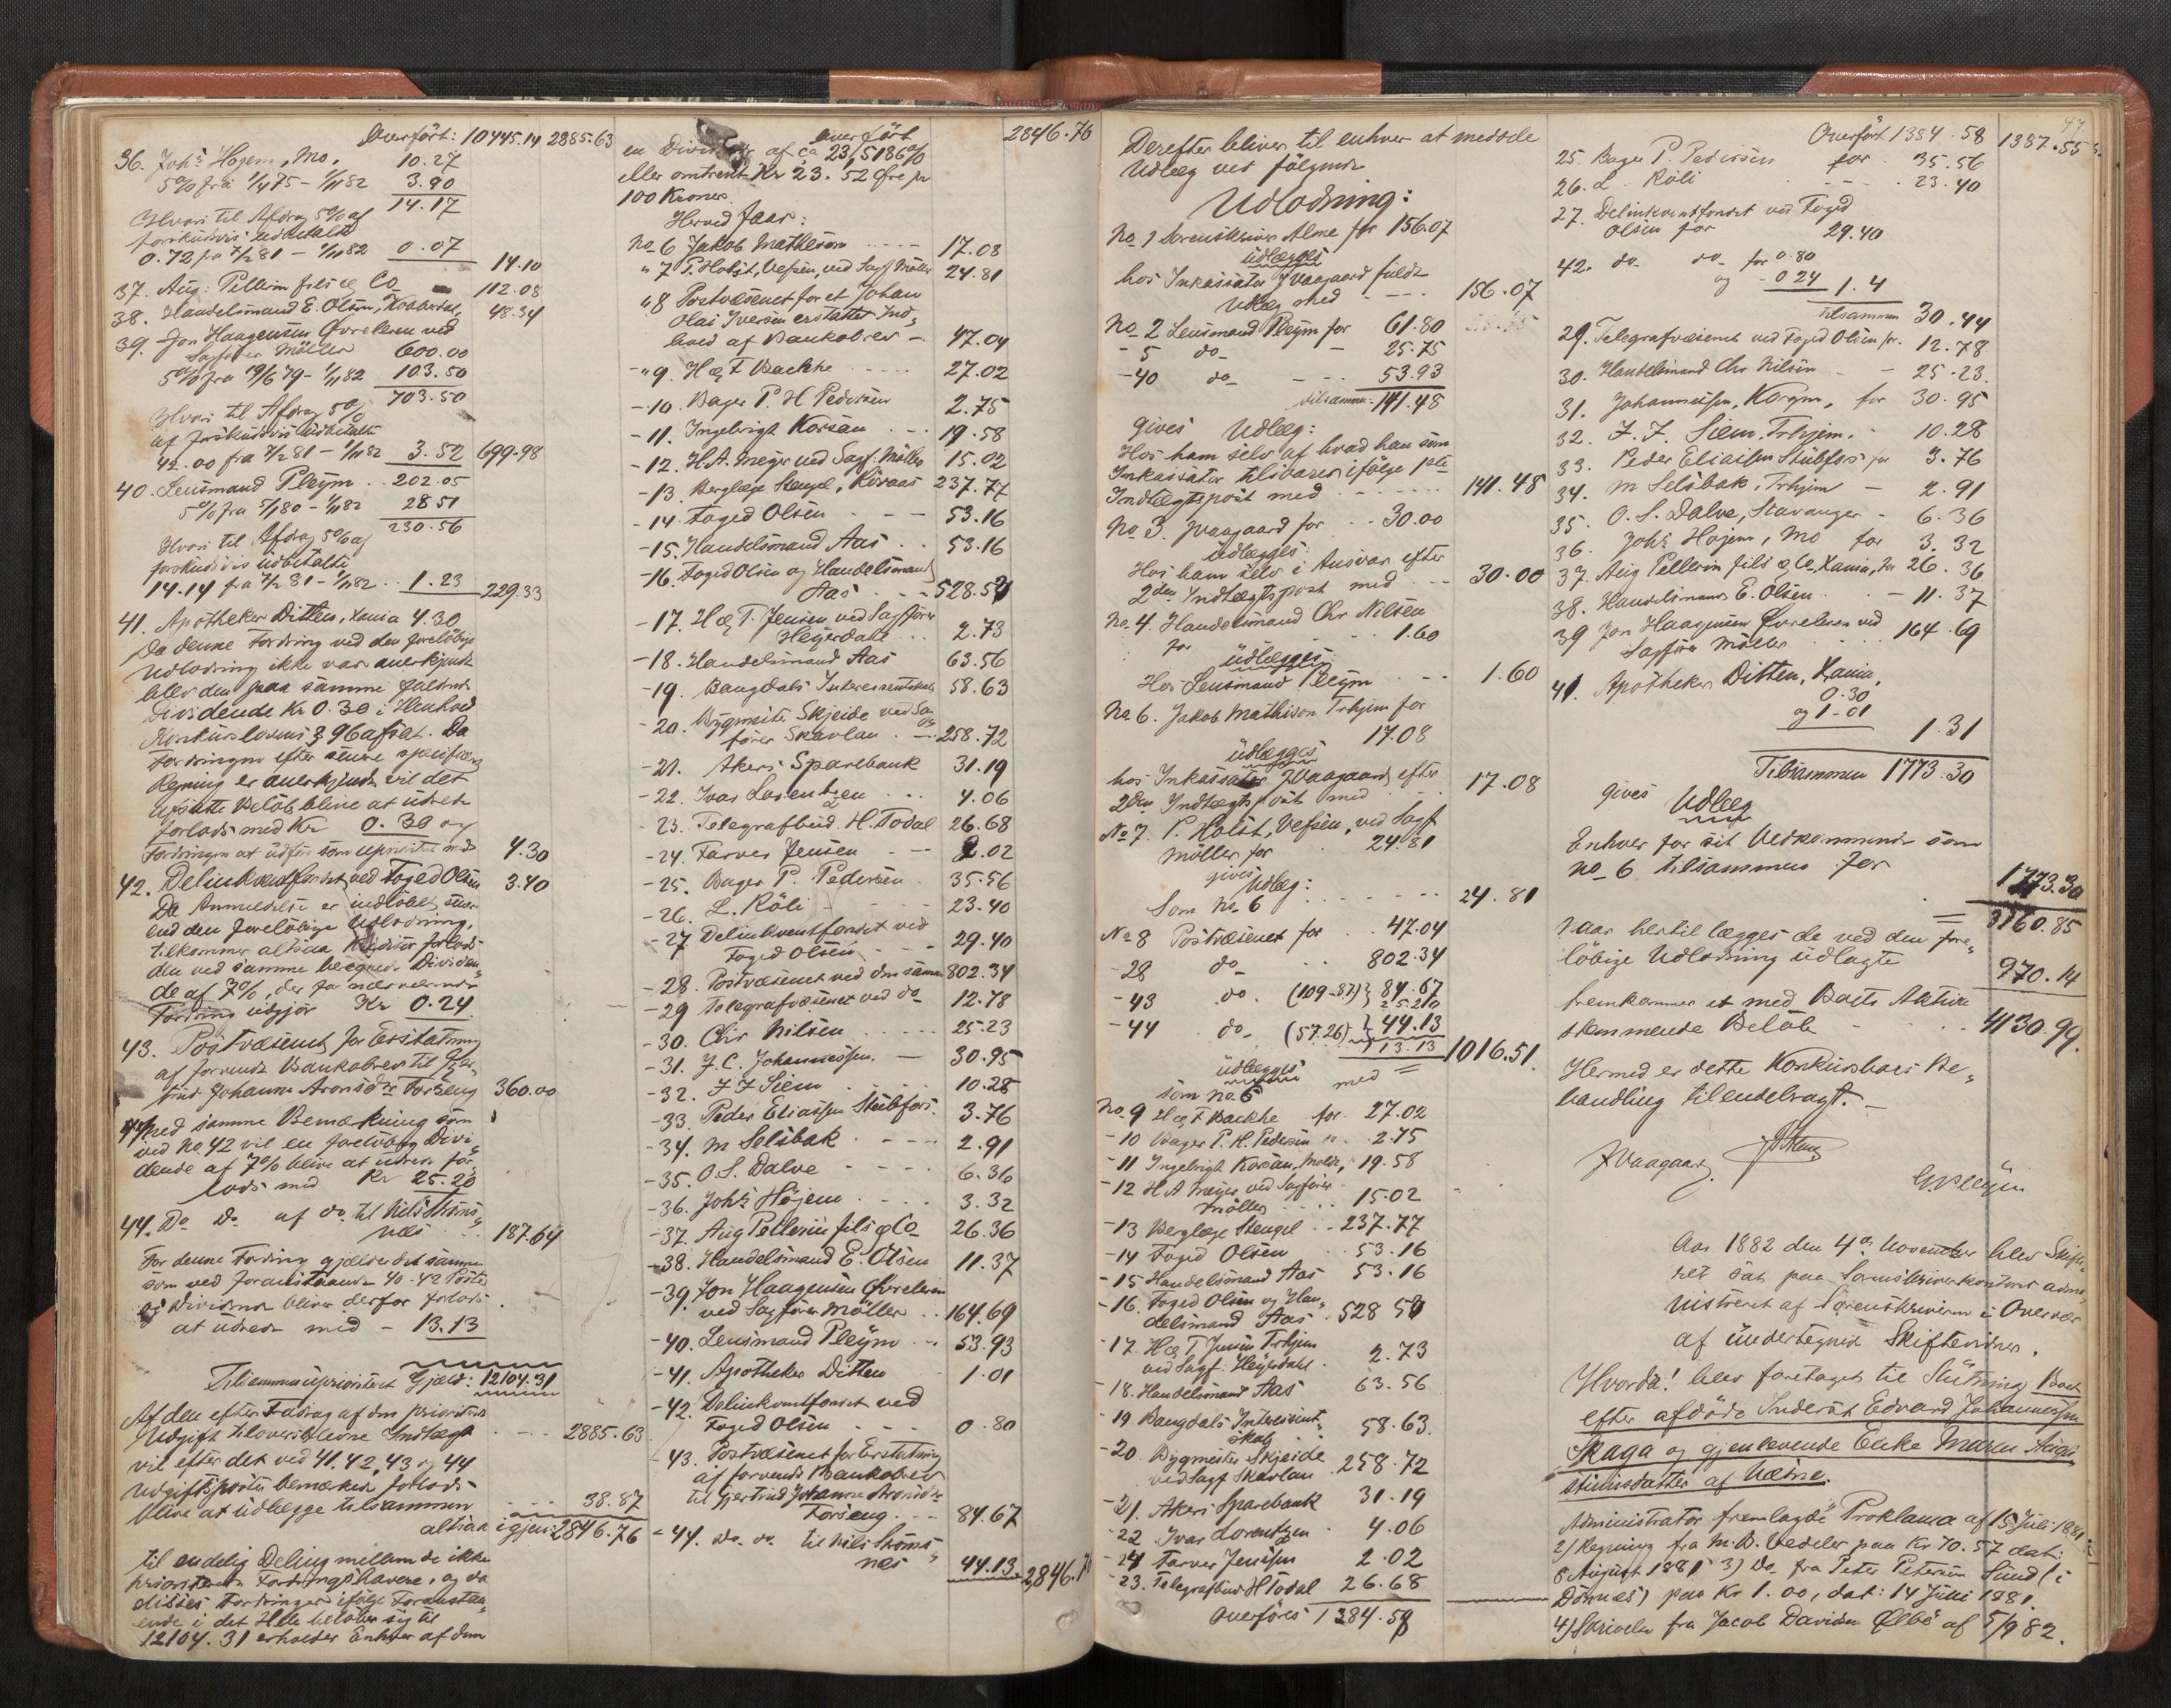 Overført: 10445.14 2885.63
36. Johs Højem, Mo, 10.27
5% fra 1/4 75 – 1/11 82 3.90
14.17
Hvori til Afdrag 5% af
forskudsvis udbetalte
0.72 fra 7/2 81 – 1/11 82 0.07
14.10
37. Aug: Pellerin fils & Co 112.08
38. Handelsmand E. Olsen, 48.34
39. Jon Haagensen Øvreleren ved
Sagfører Møller 600.00
5% fra 19/6 79 – 1/11 82 103.50
703.50
Hvori til Afdrag 5%
af forskudsvis udbetalte
42.00 fra 7/2 81 – 1/11 82 3.52 699.98
40. Lensmand Pleÿm .. 202.05
5% fra 5/1 80 – 1/11 82 28 51
230.56
Hvori til Afdrag 5% af
forskudsvis udbetalte
14.14 fra 7/2 81 – 1/11 82 .. 1.23 229.33
41. Apotheker Ditten, Xania 4.30
Da denne Fordring ved den foreløbige
Udlodning ikke var anerkjendt
blev den paa samme faldende
Dividende Kr 0.30 i Henhold
Konkurslovens § 96 afsat. Da
Fordringen efter senere specificeret
Regning er anerkjendt vil det
afsatte Beløb blive at udrede
forlods med Kr 0.30 og
Fordringen at udføre som uprioritet med 4.30
42. Delinkventfondet ved Foged Olsen 3.40
Da Anmeldelse er indløbet senere
end den foreløbige Udlodning,
tilkommer altsaa Kreditor forlods
den ved samme beregnede Dividen-
de af 7%, der for nærværende
Fordring udgjør Kr 0.24
43. Postvæsenet for Erstatning
af forvendt Bankobrev til Gjer-
trud Johanna Aronsdr Forseng 360.00
Med samme Bemærkning som
ved No 42 vil en foreløbig Divi-
dende af 7% blive at udrede for-
lods med Kr 25.20
44. Do Do af do. til Nils Strøms-
nes .. 187.64
For denne Fordring gjælder det samme
som ved foranstaaende 40-42 Poster
og Dividende bliver derfor forlods
at udrede med – 13.13
Tilsammen uprioriteret Gjæld: 12104.31
Af den efter Fradrag af den prioriterede
Udgift tiloversblevne Indtægt --- 2885.63
vil efter det ved 41, 42, 43 og 44
Udgiftsposter bemærkede forlods
blive at udlægge tilsammen --- 38.87
altsaa igjen: 2846.76
til endelig Deling mellem de ikke
prioriterede Fordringshavere, og da
disses Fordringer ifølge Foranstaa-
ende i det Hele beløber sig til
12104.31 erholder Enhver af dem
Overført 2846.76
en Dividende af ca 23,5186%
eller omtrent Kr 23.52 Øre pr
100 Kroner.
Herved faar:
No 6 Jakob Mathison ---- 17.08
" 7 P. Holst, Vefsen, ved Sagf Møller 24.81
" 8 Postvæsenet for et Johan
Olai Iversen erstattet Ind-
hold af Bankobrev – 47.04
– " 9. H & F Bachke ---- 27.02
– 10. Bager P. H. Pedersen 2.75
– 11. Ingebrigt Korsan ... 19.58
– 12. H. A. Meyer ved Sagf: Møller 15.02
– 13. Berglæge Stengel, Røraas 237.77
– 14. Foged Olsen --- 53.16
– 15. Handelsmand Aas .. 53.16
– 16. Foged Olsen og Handelsmand
Aas .. 528.51
– 17. H & T. Jensen ved Sagfører
Heyerdahl ... 2.73
– 18. Handelsmand Aas 63.56
– 19. Baagdals Interessentskab 58.63
– 20. Bygmester Skjeide ved Sag-
fører Skavlan . 258.72
– 21. Akers Sparebank 31.19
– 22. Ivar Lorentzen ... 4.06
– 23. Telegrafbud H. Todal 26.68
– 24. Farver Jensen 2.02
– 25. Bager P. Pedersen . 35.56
– 26. L. Røli 23.40
– 27. Delinkventfondet ved
Foged Olsen 29.40
– 28. Postvæsenet ved den samme 802.34
– 29 Telegrafvæsenet ved do 12.78
– 30. Chr Nilsen ..... 25.23
– 31. J. C. Johannessen. – 30.95
– 32. J J Siem ... 10.28
– 33. Peder Eliassen Stubfors. 3.76
– 34. M Selsbak ---- 2.91
– 35. O. S. Dalve ---- 6.36
– 36. Johs Højem .... 3.32
– 37. Aug Pellerin fils & Co 26.36
– 38. Handelsmand E. Olsen 11.37
– 39. Jon Haagensen Øvreleren
ved Sagfører Møller .. 164.69
– 40. Lensmand Pleÿm ... 53.93
– 41. Apotheker Ditten 1.01
– 42. Delinkventfondet ved
Foged Olsen 0.80
– 43. Postvæsenet for Erstatning
af forvendt Bankobrev
til Gjertrud Johanna Aronsdr
Forseng --- 84.67
– 44. Do do til Nils Strøms-
nes 44.13 2846.76
Derefter bliver til enhver at meddele
Udlæg ved følgende
Udlodning:
No 1 Sorenskriver Alme for 156.07
udlægges
hos Inkassator J Waagaard fuldt
Udlæg med --- 156.07
No 2 Lensmand Pleÿm for 61.80
– 5 do – 25.75
– 40 do --- 53.93
tilsammen 141.48
gives Udlæg:
Hos ham selv af hvad han som
Inkassator tilsvarer ifølge 1ste
Indtægtspost med ------ 141.48
No 3. J Waagaard for .. 30.00
udlægges:
Hos ham selv i Ansvar efter
2den Indtægtspost med --- 30.00
No. 4. Handelsmand Chr Nilsen
for 1.60
udlægges
Hos Lensmand Pleÿm --- 1.60
No. 6. Jakob Mathison Trhjem for
17.08
udlægges
hos Inkassator J Waagaard efter
2den Indtægtspost med --- 17.08
No 7. P. Holst, Vefsen, ved Sagf
Møller for 24.81
gives
Udlæg:
Som No 6 ...... 24.81
No 8 Postvæsenet for .. 47.04
– 28 do .. 802.34
– 43 do. (109.87) 84.67
25.20
– 44 do (57.26) 44.13
13.13 1016.51.
udlægges
som No 6 med =
No. 9 H & F Bachke for 27.02
– 10 Bager P. H. Pedersen .. 2.75
– 11 Ingebrigt Korsan, Molde, 19.58
– 12 H A Meyer ved Sagfører
Møller .... 15.02
– 13 Berglæge Stengel .. 237.77
– 14 Foged Olsen 53.16
– 15 Handelsmand Aas 53.16
– 16. Foged Olsen og Han-
delsmand Aas . 528 51
– 17. H & T Jensen Trhjem
ved Sagf: Heyerdahl . 2.73
– 18. Handelsmand Aas 63.56
– 19 Baagdals Interessent-
skab .. 58.63.
– 20. Bygmester Skjeide
ved Sagf Skavlan . 258.72
– 21. Akers Sparebank 31.19
– 22 Ivar Lorentzen 4.06
– 24 Farver Jensen 2.02
– 23. Telegrafbud H Todal 26.68
Overføres 1384.58
47
Overført 1384.58 1387.55
25. Bager P. Pedersen for . 35.56
26. L. Røli ---- 23.40
27. Delinkventfondet ved Foged
Olsen for 29.40
42. do do for 0.80
og 0 24 1.4
tilsammen 30.44
29. Telegrafvæsenet ved Foged Olsen for. 12.78
30. Handelsmand Chr Nilsen – – 25.23.
31. Johannessen, for 30.95
32. J. J. Siem, Trhjem. – 10.28
33. Peder Eliassen Stubfors for 3.76
34. M Selsbak, Trhjem – 2.91
35. O. S. Dalve, Stavanger – 6.36
36. Johs Højem, Mo for 3.32
37. Aug Pellerin fils & Co, Xania, for 26.36
38. Handelsmand E. Olsen .. – 11.37
39 Jon Haagensen Øvreleren ved
Sagfører Møller .... 164.69
41. Apotheker Ditten, Xania,
0.30
og 1.01 1.31
Tilsammen 1773.30
gives
Udlæg
Enhver for sit Vedkommende som
No 6 tilsammen for
1773.30
3160.85
Naar hertil lægges de ved den fore-
løbige Udlodning udlagte
970.14
fremkommer et med Boets Aktiva
stemmende Beløb .... 4130.99.
Hermed er dette Konkursboes Be-
handling tilendebragt. –
J Waagaard.
G. Pleÿm
Aar 1882 den 4de November blev Skifte-
ret sat paa Sorenskriverkontoret admi-
nistreret af Sorenskriveren i Overvær
af undertegnede Skiftevidner.
Hvorda! blev foretaget til Slutning Boet
efter afdøde Inderst Edvard Johannessen
Skaga og gjenlevende Enke Maren
af Næsne.
Administrator fremlagde Proklama af 15 Juli 1881
2) Regning fra M. B. Vedeler paa Kr 70.57 dat:
8 August 1881 3) Do fra Peter Petersen Sund (i
Dønnes) paa Kr 1.00, dat: 14 Juli 1881.
4) Skrivelse fra Jacob Davidsen af 5/9 82.